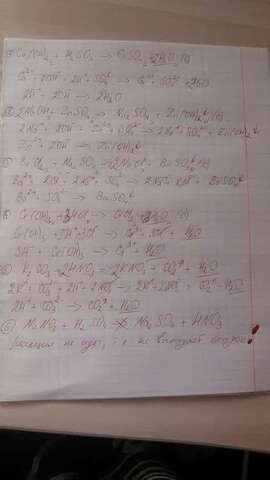 ① Cu(OH)₂ + H₂SO₄ → CuSO₄ + 2H₂O
Cu²⁺ + 2OH⁻ + 2H⁺ + SO₄²⁻ → Cu²⁺ + SO₄²⁻ + 2H₂O
2H⁺ + 2OH⁻ → 2H₂O
② 2NaOH + ZnSO₄ → Na₂SO₄ + Zn(OH)₂↓
2Na⁺ + 2OH⁻ + Zn²⁺ + SO₄²⁻ → 2Na⁺ + SO₄²⁻ + Zn(OH)₂↓
Zn²⁺ + 2OH⁻ → Zn(OH)₂↓
BaCl₂ + Na₂SO₄ → 2NaCl + BaSO₄↓
Ba²⁺ + 2Cl⁻ + 2Na⁺ + SO₄²⁻ → 2Na⁺ + 2Cl⁻ + BaSO₄↓
Ba²⁺ + SO₄²⁻ → BaSO₄
Cr(OH)₃ + 3HCl → CrCl₃ + 3H₂O
Cr(OH)₃ + 3H⁺ + 3Cl⁻ → Cr³⁺ + 3Cl⁻ + H₂O
3H⁺ + Cr(OH)₃ → Cr³⁺ + H₂O
K₂CO₃ + 2HNO₃ → 2KNO₃ + CO₂↑ + H₂O
2K⁺ + CO₃²⁻ + 2H⁺ + 2NO₃⁻ → 2K⁺ + 2NO₃⁻ + CO₂↑ + H₂O
2H⁺ + CO₃²⁻ → CO₂↑ + H₂O
⑥ NaNO₃ + H₂SO₄ ↛ Na₂SO₄ + HNO₃
реакция не идет, т.к. не выпадает осадок